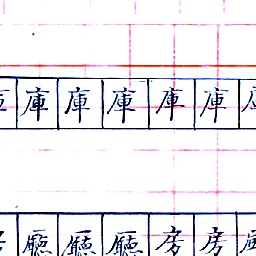 庫庫庫庫庫
廳廳廳房房